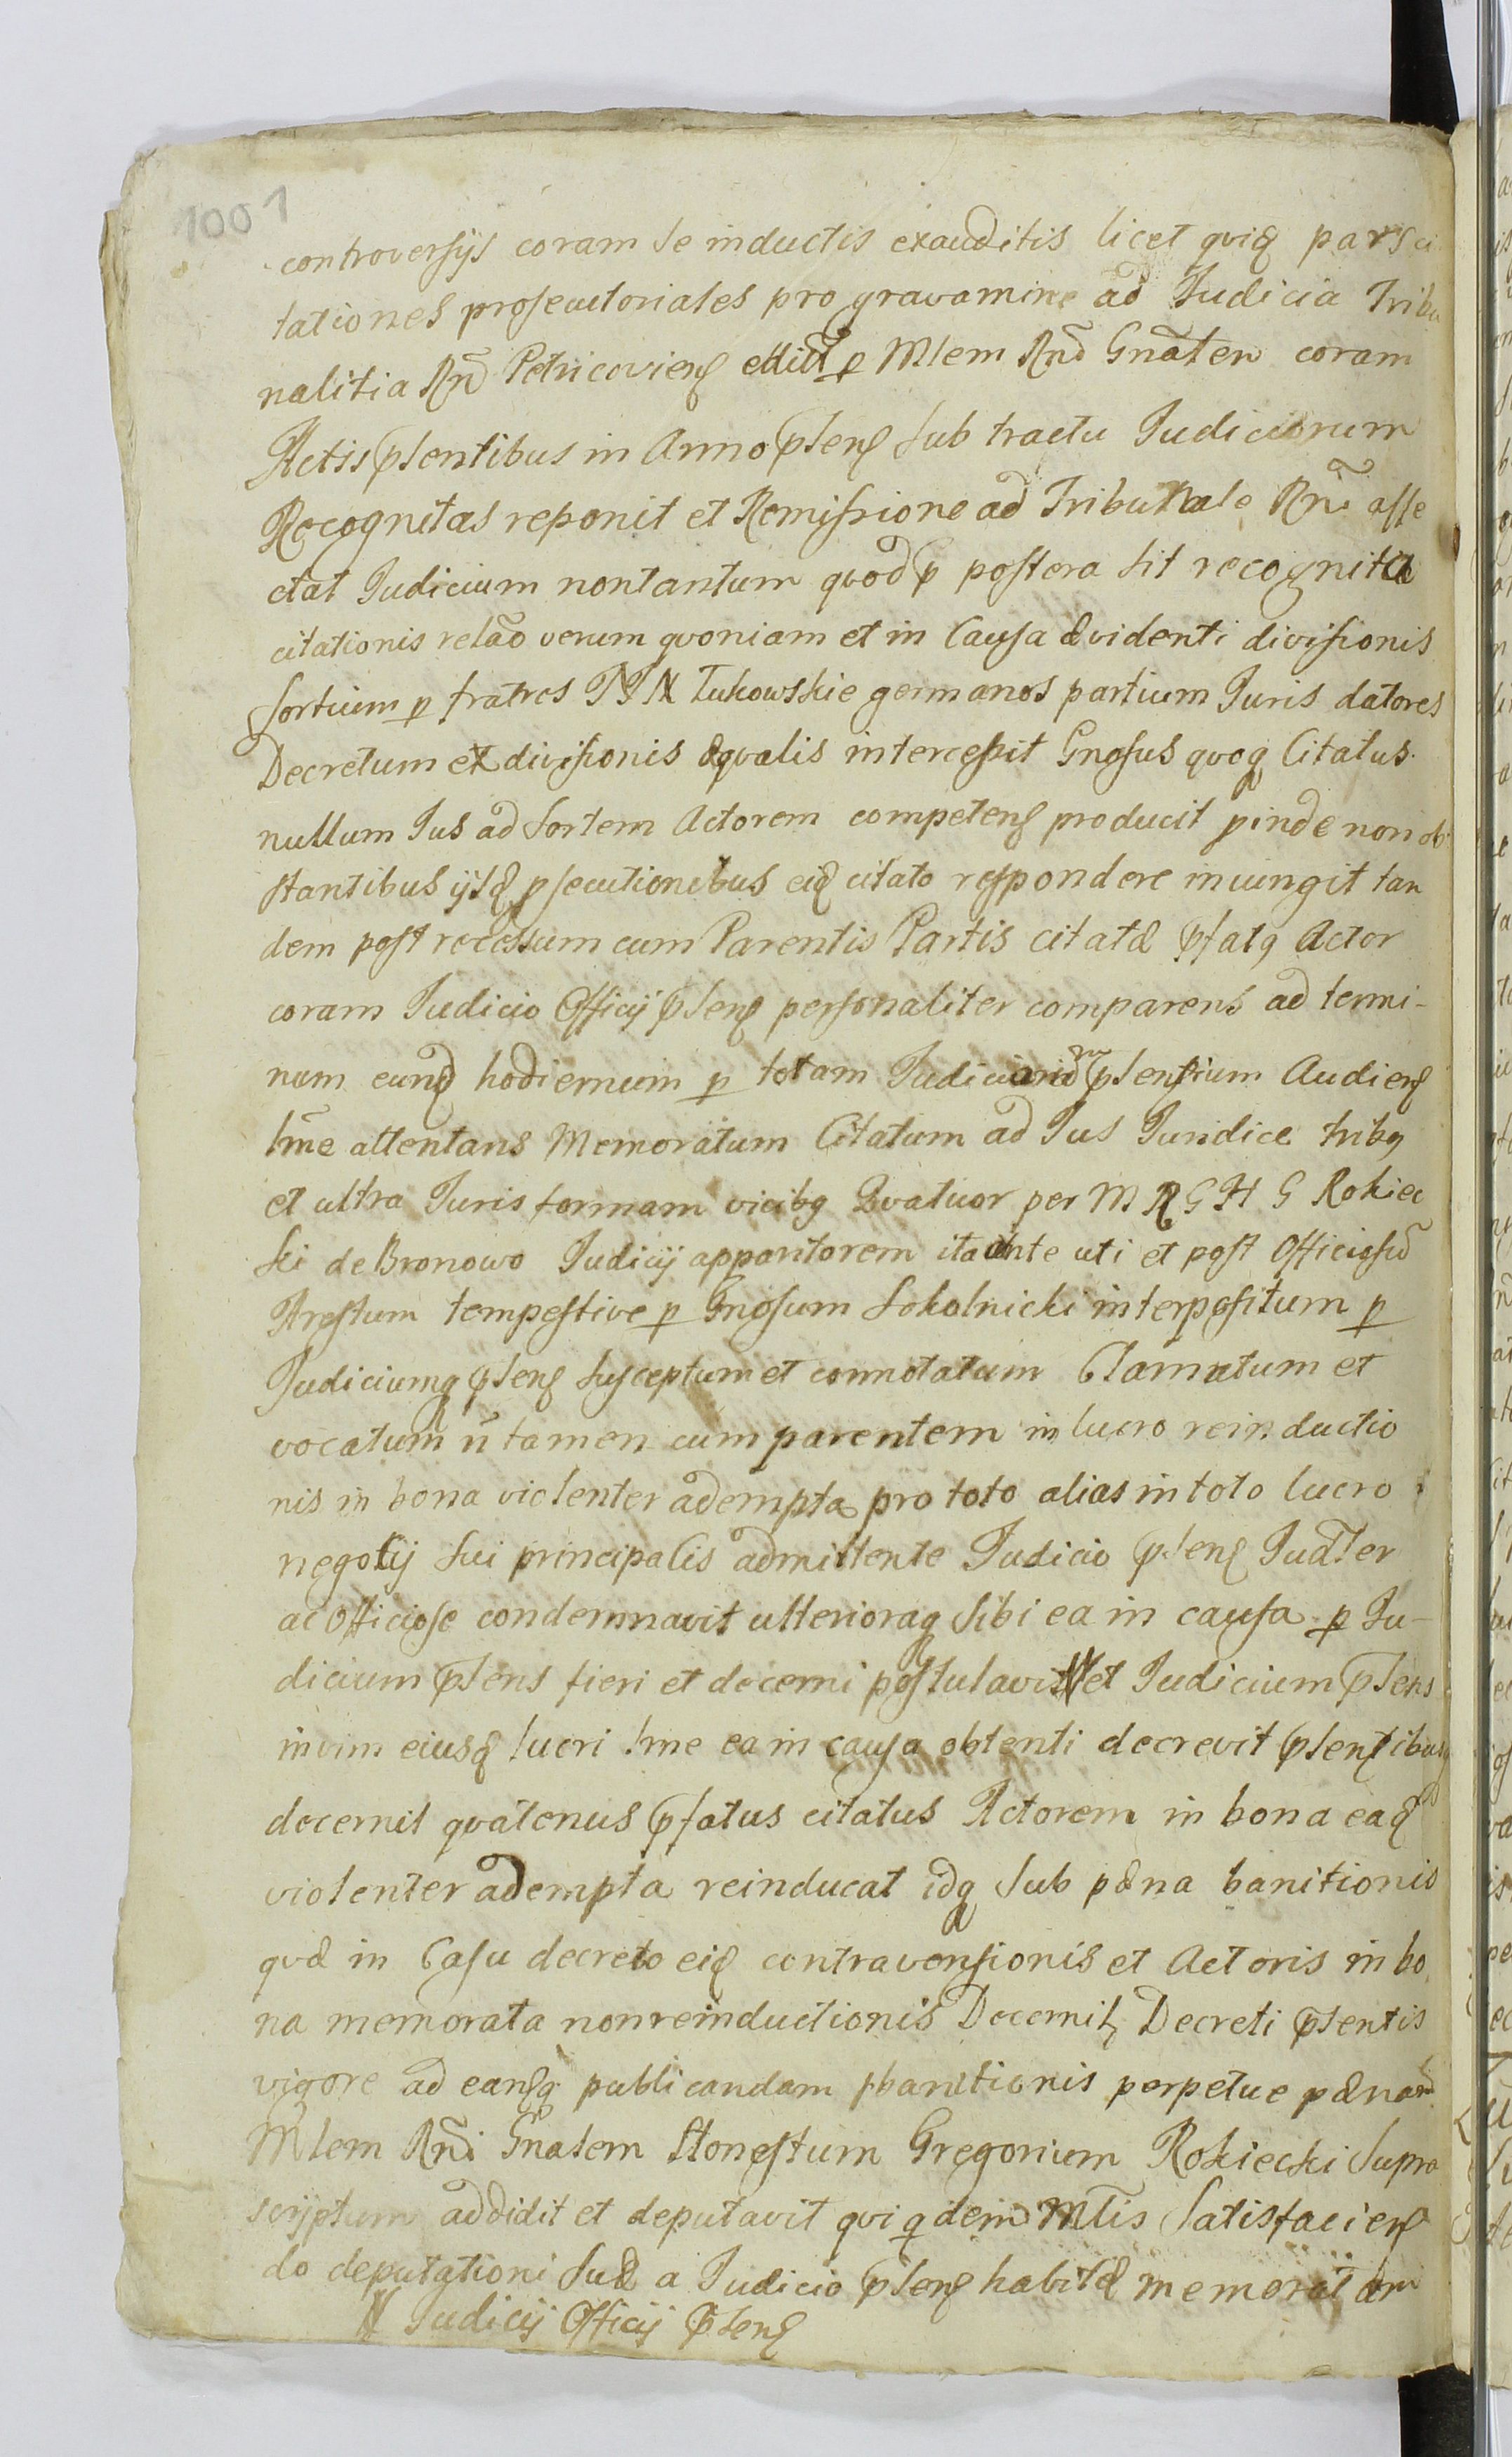 1001
controversys coram se inductis exauditis licet qviq pars ci
tationes prosecutoriales pro gravamine ad Judicia Tribu
nalitia Rñ Petricoviens edid p Mlem Rnd Gnãlen coram
Actis pŝentibus in Anno pŝens sub tractu Judiciorum
Recognitas reponit et Remissione ad Tribunale Rñi affe
ctat Judicium nontantum qvod p postera sit recognita
citationis relão verum qvoniam et in Causa evidenti divisionis
sortium p fratres Łukowskie germanos partium Juris datores
Decretum et divisionis æqvalis intercessit Gnosus qvoq Citatus
nullum Jus ad sortem Actorem competens producit pinde non ob
stantibus ijsd psecutionibus eid citato respondere iniungit tan
dem post recessum cum Parentis Partis citatæ pfatq Actor
coram Judicio Officij pŝens personaliter comparens ad termi-
num eund hodiernum p totam Judiciariã pŝensium Audiens
lr̃me attentans Memoratum Citatum ad Jus Juridice tribq
et ultra Juris formam vicibq Qvatuor per M R G H G Rokiec
ki de Bronowo Judicij apparitorem ita ante uti et post Officiosũ
Arestum tempestive p Gnosum Sokolnicki interpositum p
Judiciumq pŝens susceptum et connotatum Clamatum et
vocatum ñ tamen cumparentem in lucro reinductio
nis in bona violenter adempta pro toto alias in toto lucro
negotij sui principalis admittente Judicio pŝens Judŧer
ac Officiose condemnavit ulterioraq sibi ea in causa p Ju-
dicium pŝens fieri et decerni postulavit et Judicium pŝens
in vim eiusd lucri lr̃me ea in causa obtenti decrevit pŝentibusq
decernit qvatenus pfatus citatus Actorem in bona ead
violenter adempta reinducat idq sub pæna banitionis
qvæ in Casu decreto eid contravensionis et Actoris in bo
na memorata nonreinductionis Decernit Decreti pŝentis
vigore ad eansq publicandam banitionis perpetue pænam
Mlem Rñi Gnalem Honestum Gregorium Rokiecki supra
scriptum addidit et deputavit qvi qdem Mlis satisfacien
do deputationi suæ a Judicio pŝens habitæ memoratam
Judicij Officij pŝens